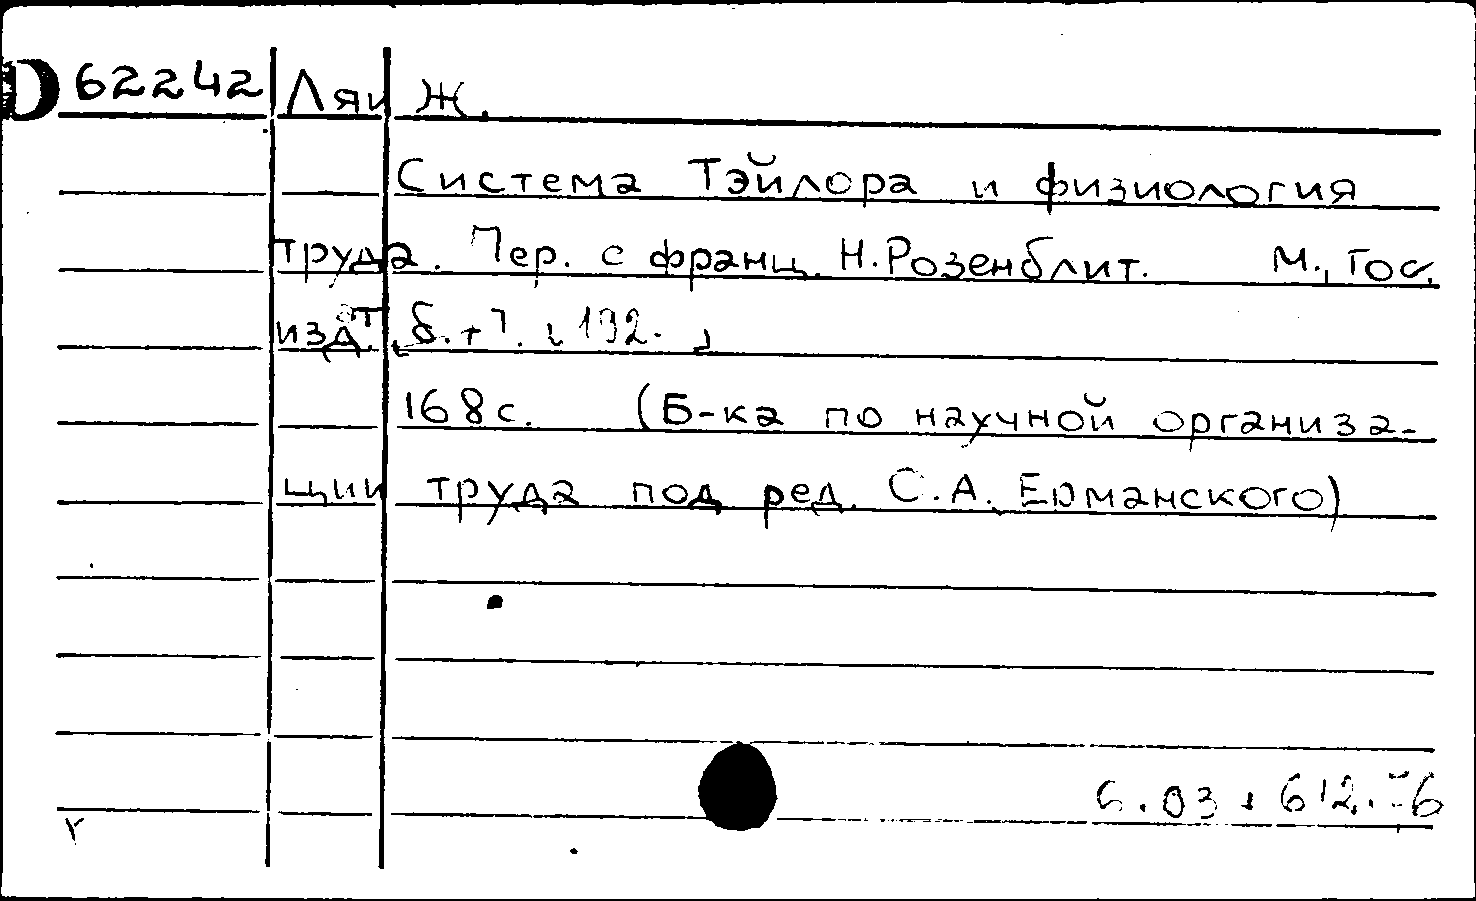 D 62242 Ляи Ж.
Система Тэйлора и физиология
труда. Пер. с франц. Н. Розенблит. М., Гос.
изд. б. г. 192.
168 с. (Б-ка по научной организа-
ции труда под ред. С.А. Ерманского)